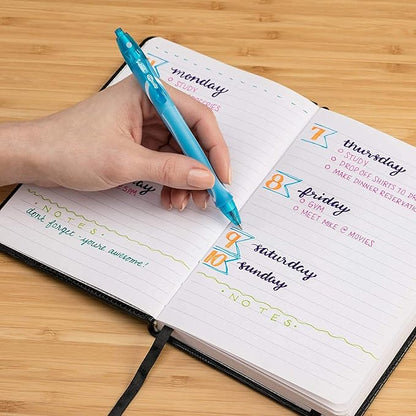 monday
STUDY
GYM
NOTES
don't forget - you're awesome!
7 thursday
STUDY
DROP OFF SHIRTS TO
MAKE DINNER
8 friday
GYM
MEET MIKE @ MOVIES
9 saturday
10 sunday
NOTES